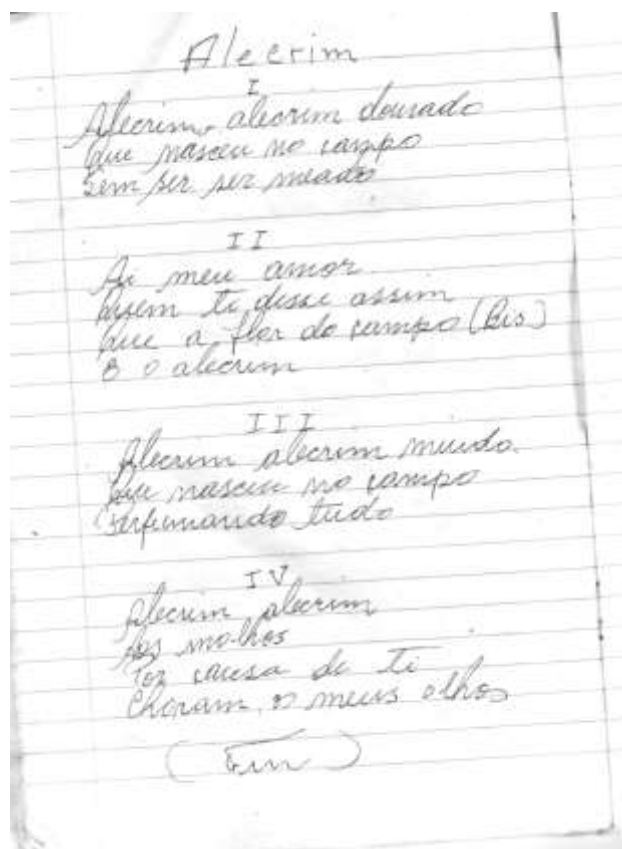 Alecrim
I
Alecrim, alecrim dourado
Que nasceu no campo
Sem ser ser meado
II
Ai meu amor
Quem te disse assim
Que a flor do campo (Bis)
É o alecrim
III
Alecrim alecrim miudo.
Que nasceu no campo
Perfumando tudo
IV
Alecrim alecrim
Aos molhos
Por causa de ti
Choram os meus olhos
(Fim)